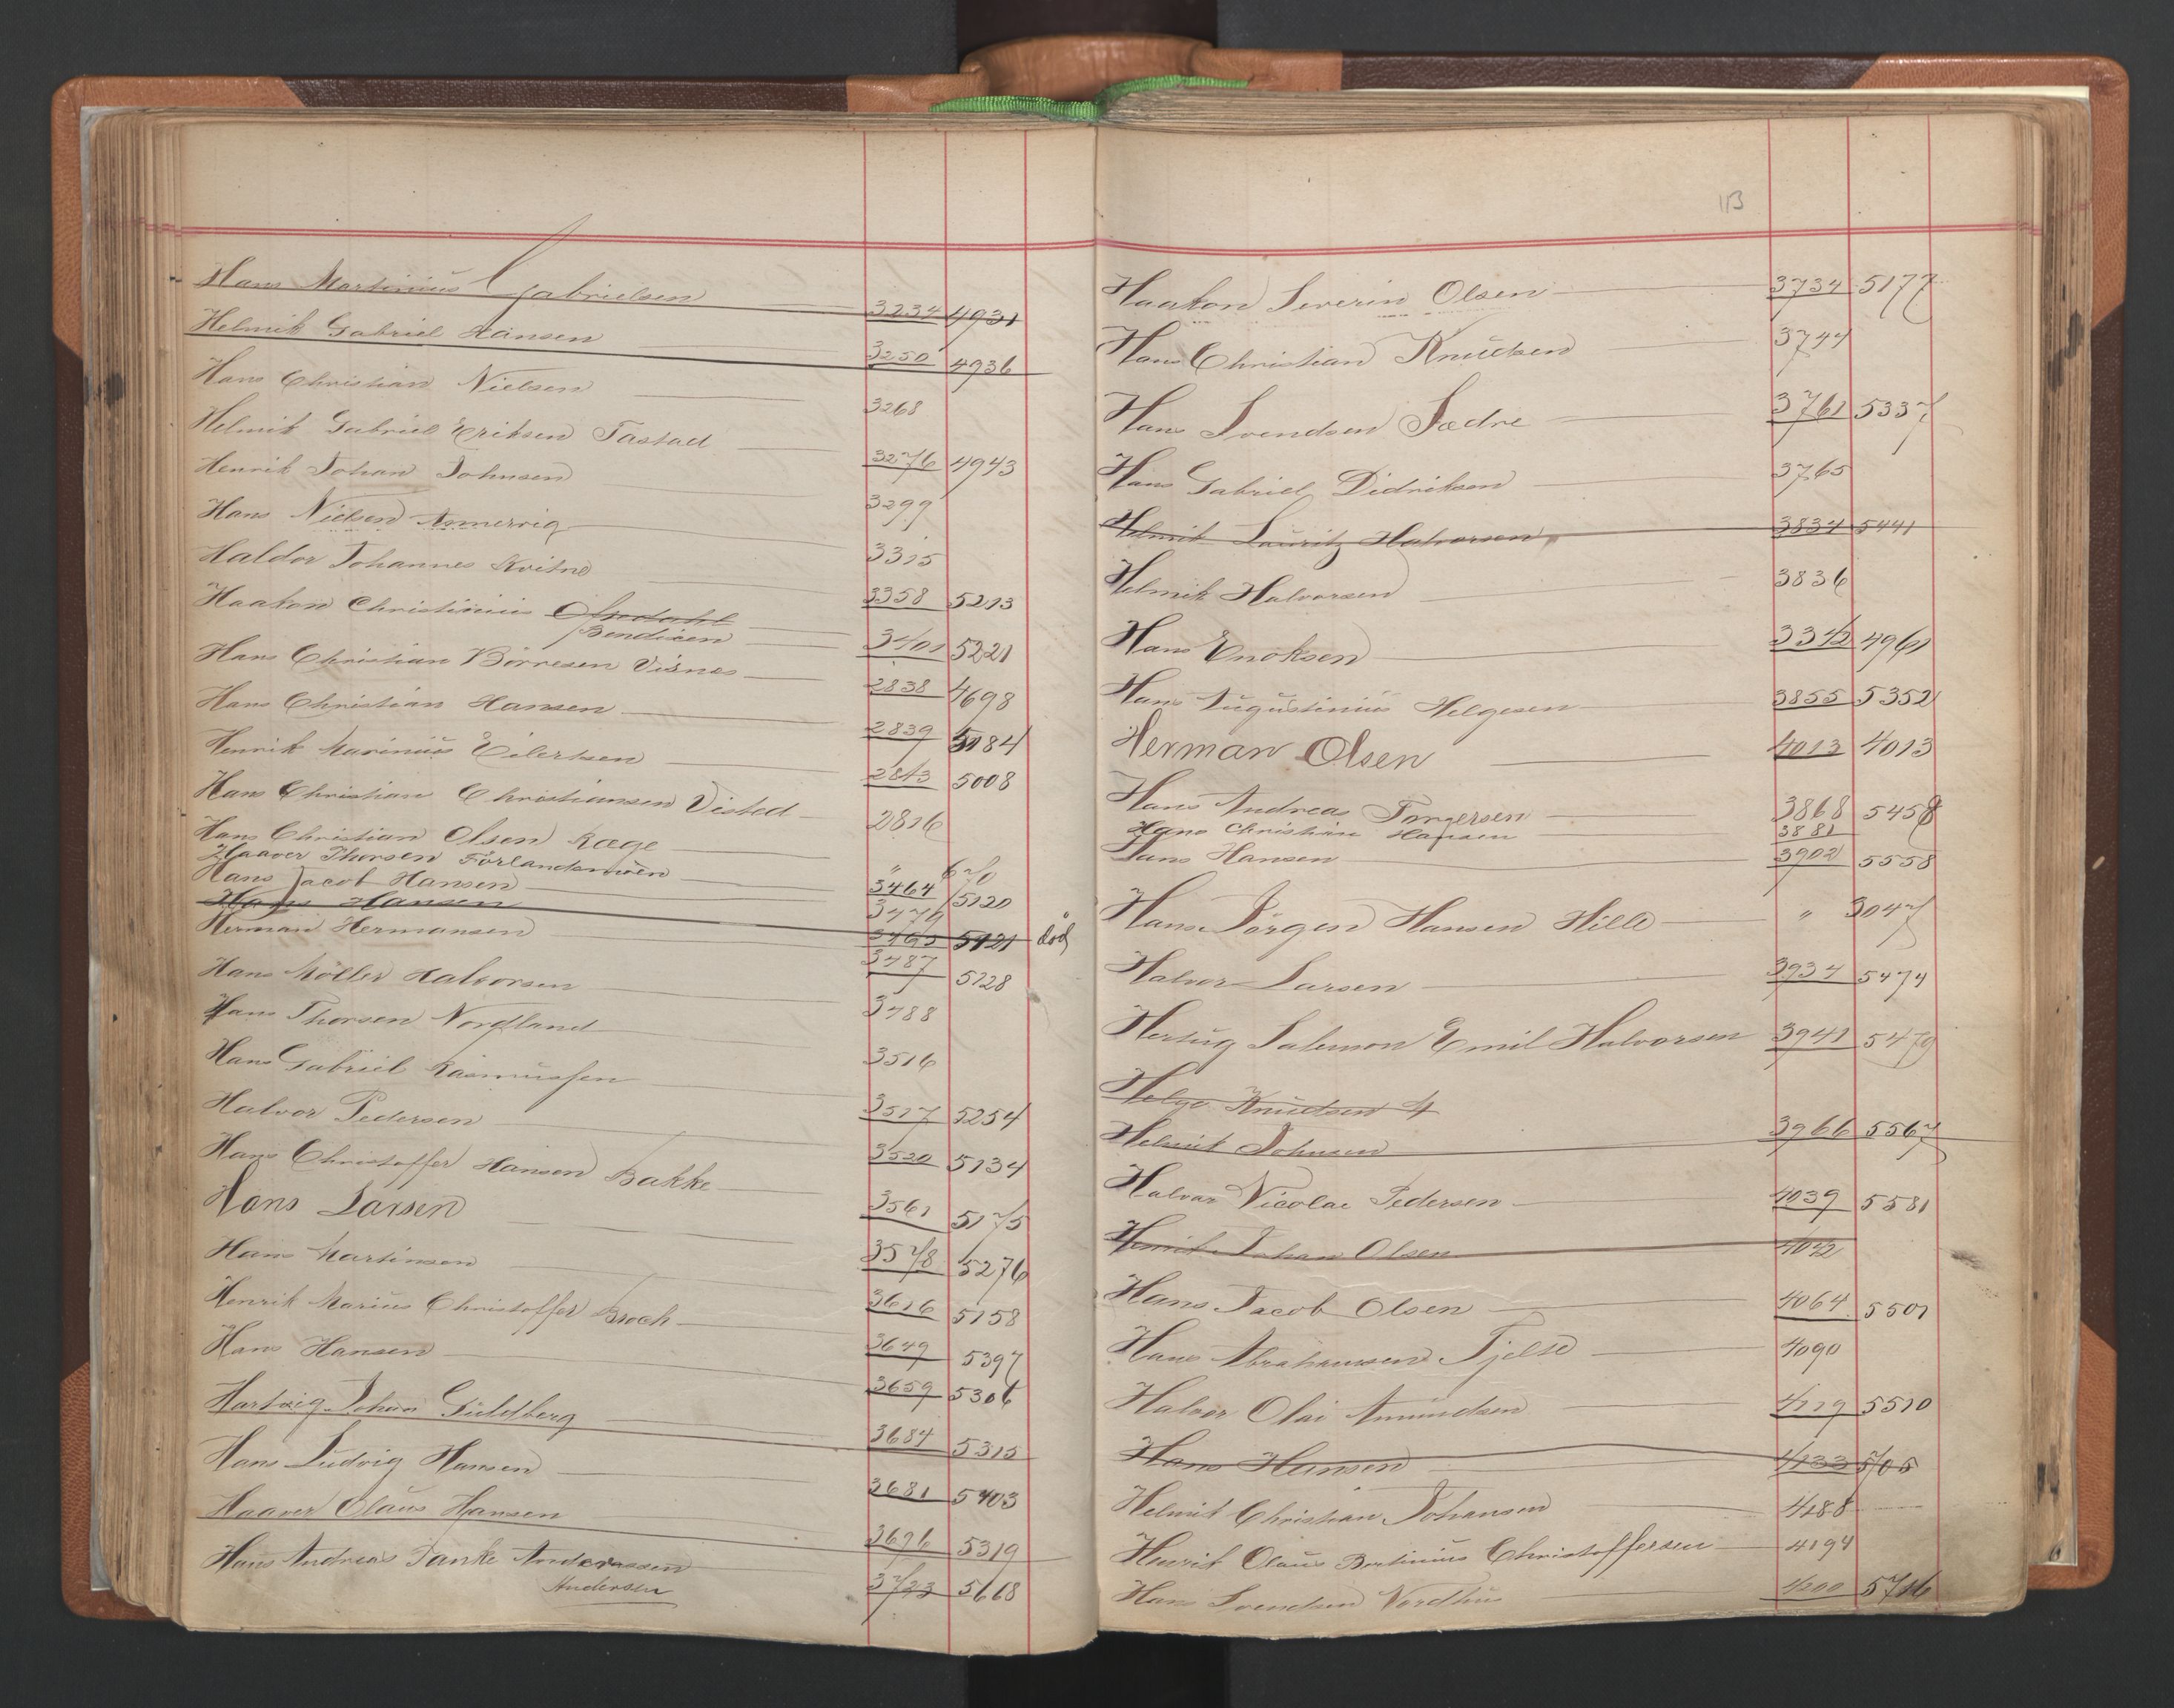 Hans Martinius Gabrielsen 3234 4931
Helmik Gabriel Hansen 3250 4936
Hans Christian Nielsen 3268
Helmik Gabriel Eriksen Tastad 3276 4943
Henrik Johan Johnsen 3299
Hans Nielsen 3315
Haldor Johannes Kvitne 3358 5213
Haakon Christinius
Bendixen 3401 5221
Hans Christian Börresen Visnes 2838 4698
Hans Christian Hansen 2839 5184
Henrik Marinius Eilertsen 2843 5008
Hans Christian Christiansen Visted 2816
Hans Christian Olsen Ræge " 670
Haaver Thorsen Förlandsmoen 3464 5120
Hans Jacob Hansen 3474
Hans Hansen 3465 5121 död
Herman Hermansen 3487 5128
Hans Möller Halvorsen 3488
Hans Thorsen Nordland 3516
Hans Gabriel Rasmussen 3517 5254
Halvor Pedersen 3520 5134
Hans Christoffer Hansen Bakke 3561 5175
Hans Larsen 3578 5276
Hans Martinsen 3616 5158
Henrik Marius Christoffer Broch 3649 5397
Hans Hansen 3659 5306
Hartvig Johan Guldberg 3684 5315
Hans Ludvig Hansen 3681 5403
Haaver Olaus Hansen 3696 5319
Hans Andreas Tanke Anderassen 3723 5668
Andersen
113
Haakon Severin Olsen 3734 5177
Hans Christian Knudsen 3744
Hans Svendsen Sædre 3761 5337
Hans Gabriel Didriksen 3765
Helmik Lauritz Halvorsen 3834 5441
Helmik Halvorsen 3836
Hans Enoksen 3342 4961
Hans Augustinius Helgesen 3855 5352
Herman Olsen 4013 4013
Hans Andreas Torgersen 3868 5458
Hans Christian Hansen 3881
Hans Hansen 3902 5558
Hans Jörgen Hansen Hille " 3047
Halvor Larsen 3934 5474
Hertug Salemon Emil Halvorsen 3941 5479
Helge Knudsen
Helmik Johnsen 3966 5567
Halvar Nicolai Pedersen 4039 5581
Henrik Johan Olsen 4042
Hans Jacob Olsen 4064 5501
Hans Abrahamsen Tjelse 4090
Halvor Olai Amundsen 4119 5510
Hans Hansen 4133 5705
Helmik Christian Johansen 4188
Henrik Olaus Bertinius Christoffersen 4194
Hans Svendsen Nordhus 4200 5716